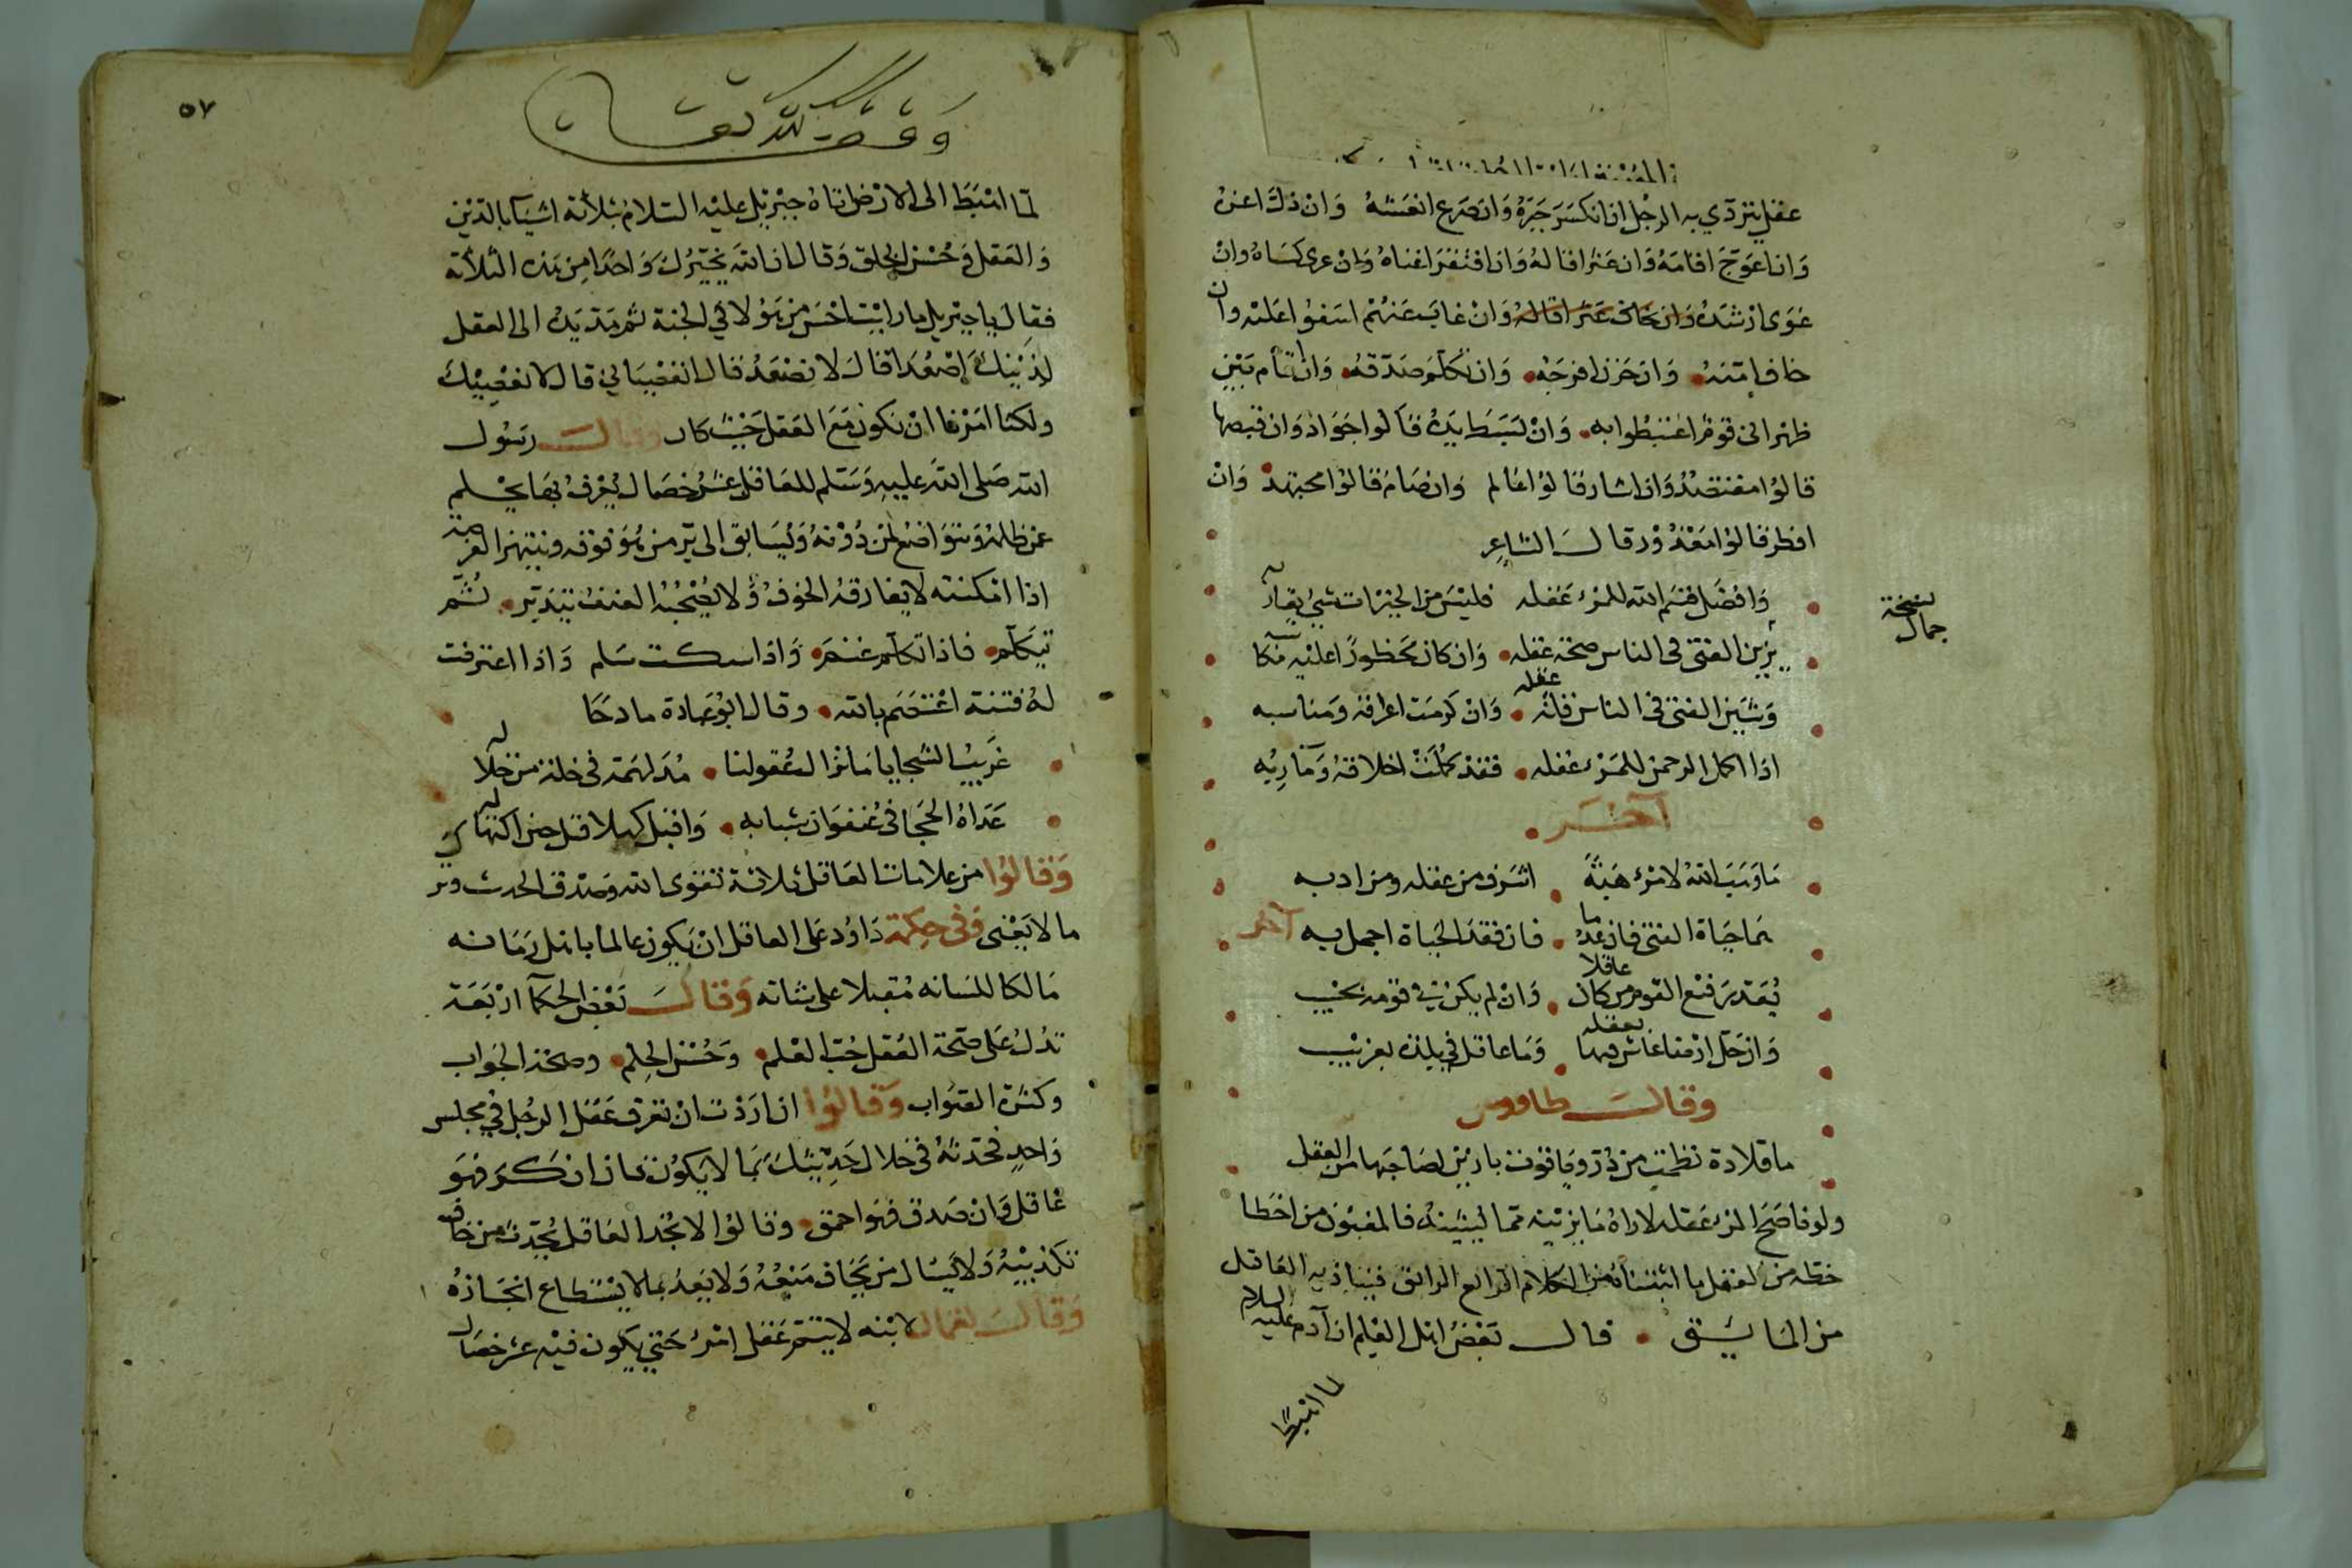 عقل يتردى به الرجل ان انكسر جبره وان صرع انعشه وان ذل اعزه
وان اعوج اقامه وان عثر اقاله وان افتقر اغناه وان عرى كساه وان
غوى ارشده وان خاف عثر اقاله وان غاب عنهم اسفوا عليه وان
خاف امنه وان حزن افرحه وان تكلم صدقه وان اقام بين
ظهرانى قوم اغتبطوا به وان بسط يده قالوا جواد وان قبضها
قالوا مقتصد وان اشار قالوا عالم وان صام قالوا مجتهد وان
افطر قالوا معذور وقال الشاعر
وافضل قسم الله للمرء عقله فليس من الخيرات شيء يقاربه
يزين الفتى فى الناس صحة عقله وان كان محظورا عليه مكاسبه
نسخة
جمال
وشين الفتى فى الناس قلة عقله وان كرمت اعراقه ومناسبه
اذا اكمل الرحمن للمرء عقله فقد كملت اخلاقه ومآربه
آخر
ما وهب الله لامرء هبة اشرف من عقله ومن ادبه
هما حياة الفتى فان عدما فان فقد الحياة اجمل به آخر
يعد رفيع القوم من كان عاقلا وان لم يكن فى قومه بحسيب
وان حل ارضا عاش فيها بعقله وما عاقل فى بلدة بغريب
وقال طاووس
ما قلادة نظمت من در وياقوت بازين لصاحبها من العقل
ولو ناصح المرء عقله لاراه ما يزينه مما يشينه فالمغبون من اخطا
حظه من العقل ما انشأه من الكلام الرائع الرائق فيتاذى به العاقل
من الما قال بعض اهل العلم ان آدم عليه السلام
لما اهبط
٥٧
وقف لله تعالى
لما اهبط الى الارض اتاه جبريل عليه السلام بثلاثة اشيآء بالدين
والعقل وحسن الخلق وقال ان الله يخيرك واحدا من هذه الثلاثة
فقال يا جبريل ما رايت احسن من هؤلا الا فى الجنة ثم مد يده الى العقل
لذينك اصعدا قال لا نصعد قال اتعصيانى قال لا نعصيك
ولكنا امرنا ان نكون مع العقل حيث كان وقال رسول
الله صلى الله عليه وسلم للعاقل عشر خصال يعرف بها يحلم
عن ظلمه ويتواضع لمن دونه ويسابق الى بر من هو فوقه وينتهز الفرصة
اذا امكنته لا يفارقه الخوف ولا يصحبه العنف يتدبر ثم
يتكلم فاذا تكلم غنم واذا سكت سلم واذا اعترضت
له فتنة اعتصم بالله وقال ابو عبادة مادحا
غريب السجايا ما تزال عقولنا مدلهة فى خلة من خلاله
عداه الحجا فى عنفوان شبابه واقبل كهلا قبل حين اكتهاله
وقالوا من علامات العاقل ثلاثة تقوى الله وصدق الحديث وترك
ما لا يعنى وفى حكمة داود على العاقل ان يكون عالما باهل زمانه
مالكا للسانه مقبلا على شانه وقال بعض الحكمآ اربعة
تدل على صحة العقل حب العلم وحسن الحلم وصحة الجواب
وكثرة الصواب وقالوا ان اردت ان تعرف عقل الرجل فى مجلس
واحد فحدثه فى خلال حديثك بما لا يكون فان انكر فهو
عاقل وان صدق فهو احمق وقالوا لا تجد العاقل يحدث من خاف
تكذيبه ولا يسال من يخاف منعه ولا يعد بما لا يستطاع انجازه
وقال لقمان لابنه لا يتم عقل امرء حتى يكون فيه عشر خصال